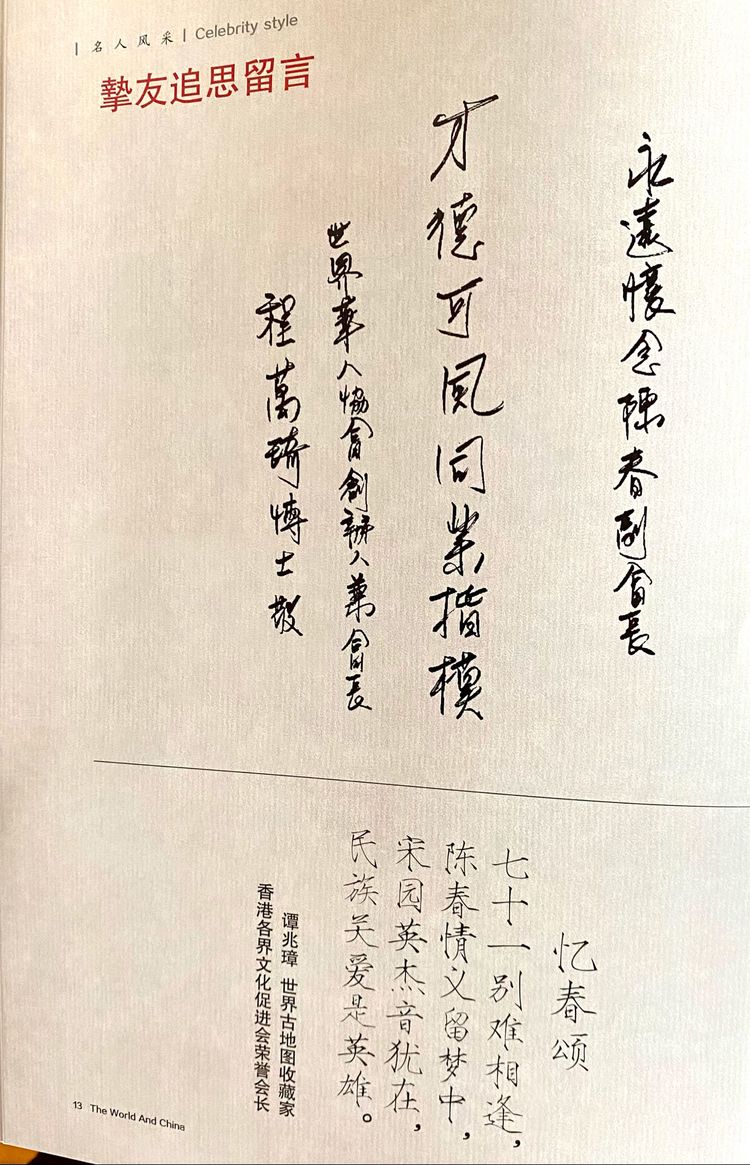 | 名人风采 | Celebrity style
摯友追思留言
永遠懷念陳春副會長
才德可風同業楷模
世界華人協會創辦人兼會長
程萬琦博士敬
忆春颂
七十一别难相逢，
陈春情义留梦中，
宋园英杰音犹在，
民族关爱是英雄。
谭兆璋 世界古地图收藏家
香港各界文化促进会荣誉会长
13 The World And China